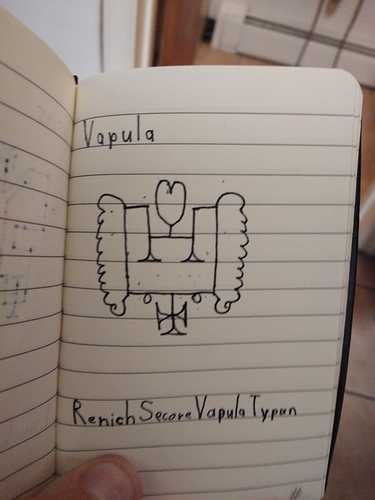 Vapula
Renich Secore Vapula Typan